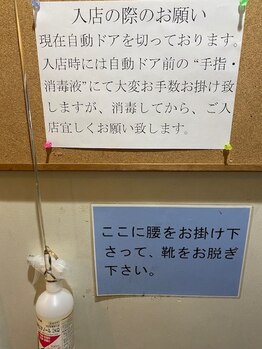 入店の際のお願い
現在自動ドアを切っております。
入店時には自動ドア前の“手指・
消毒液”にて大変お手数お掛け致
しますが、消毒してから、ご入
店宜しくお願い致します。
ここに腰をお掛け下
さって、靴をお脱ぎ
下さい。